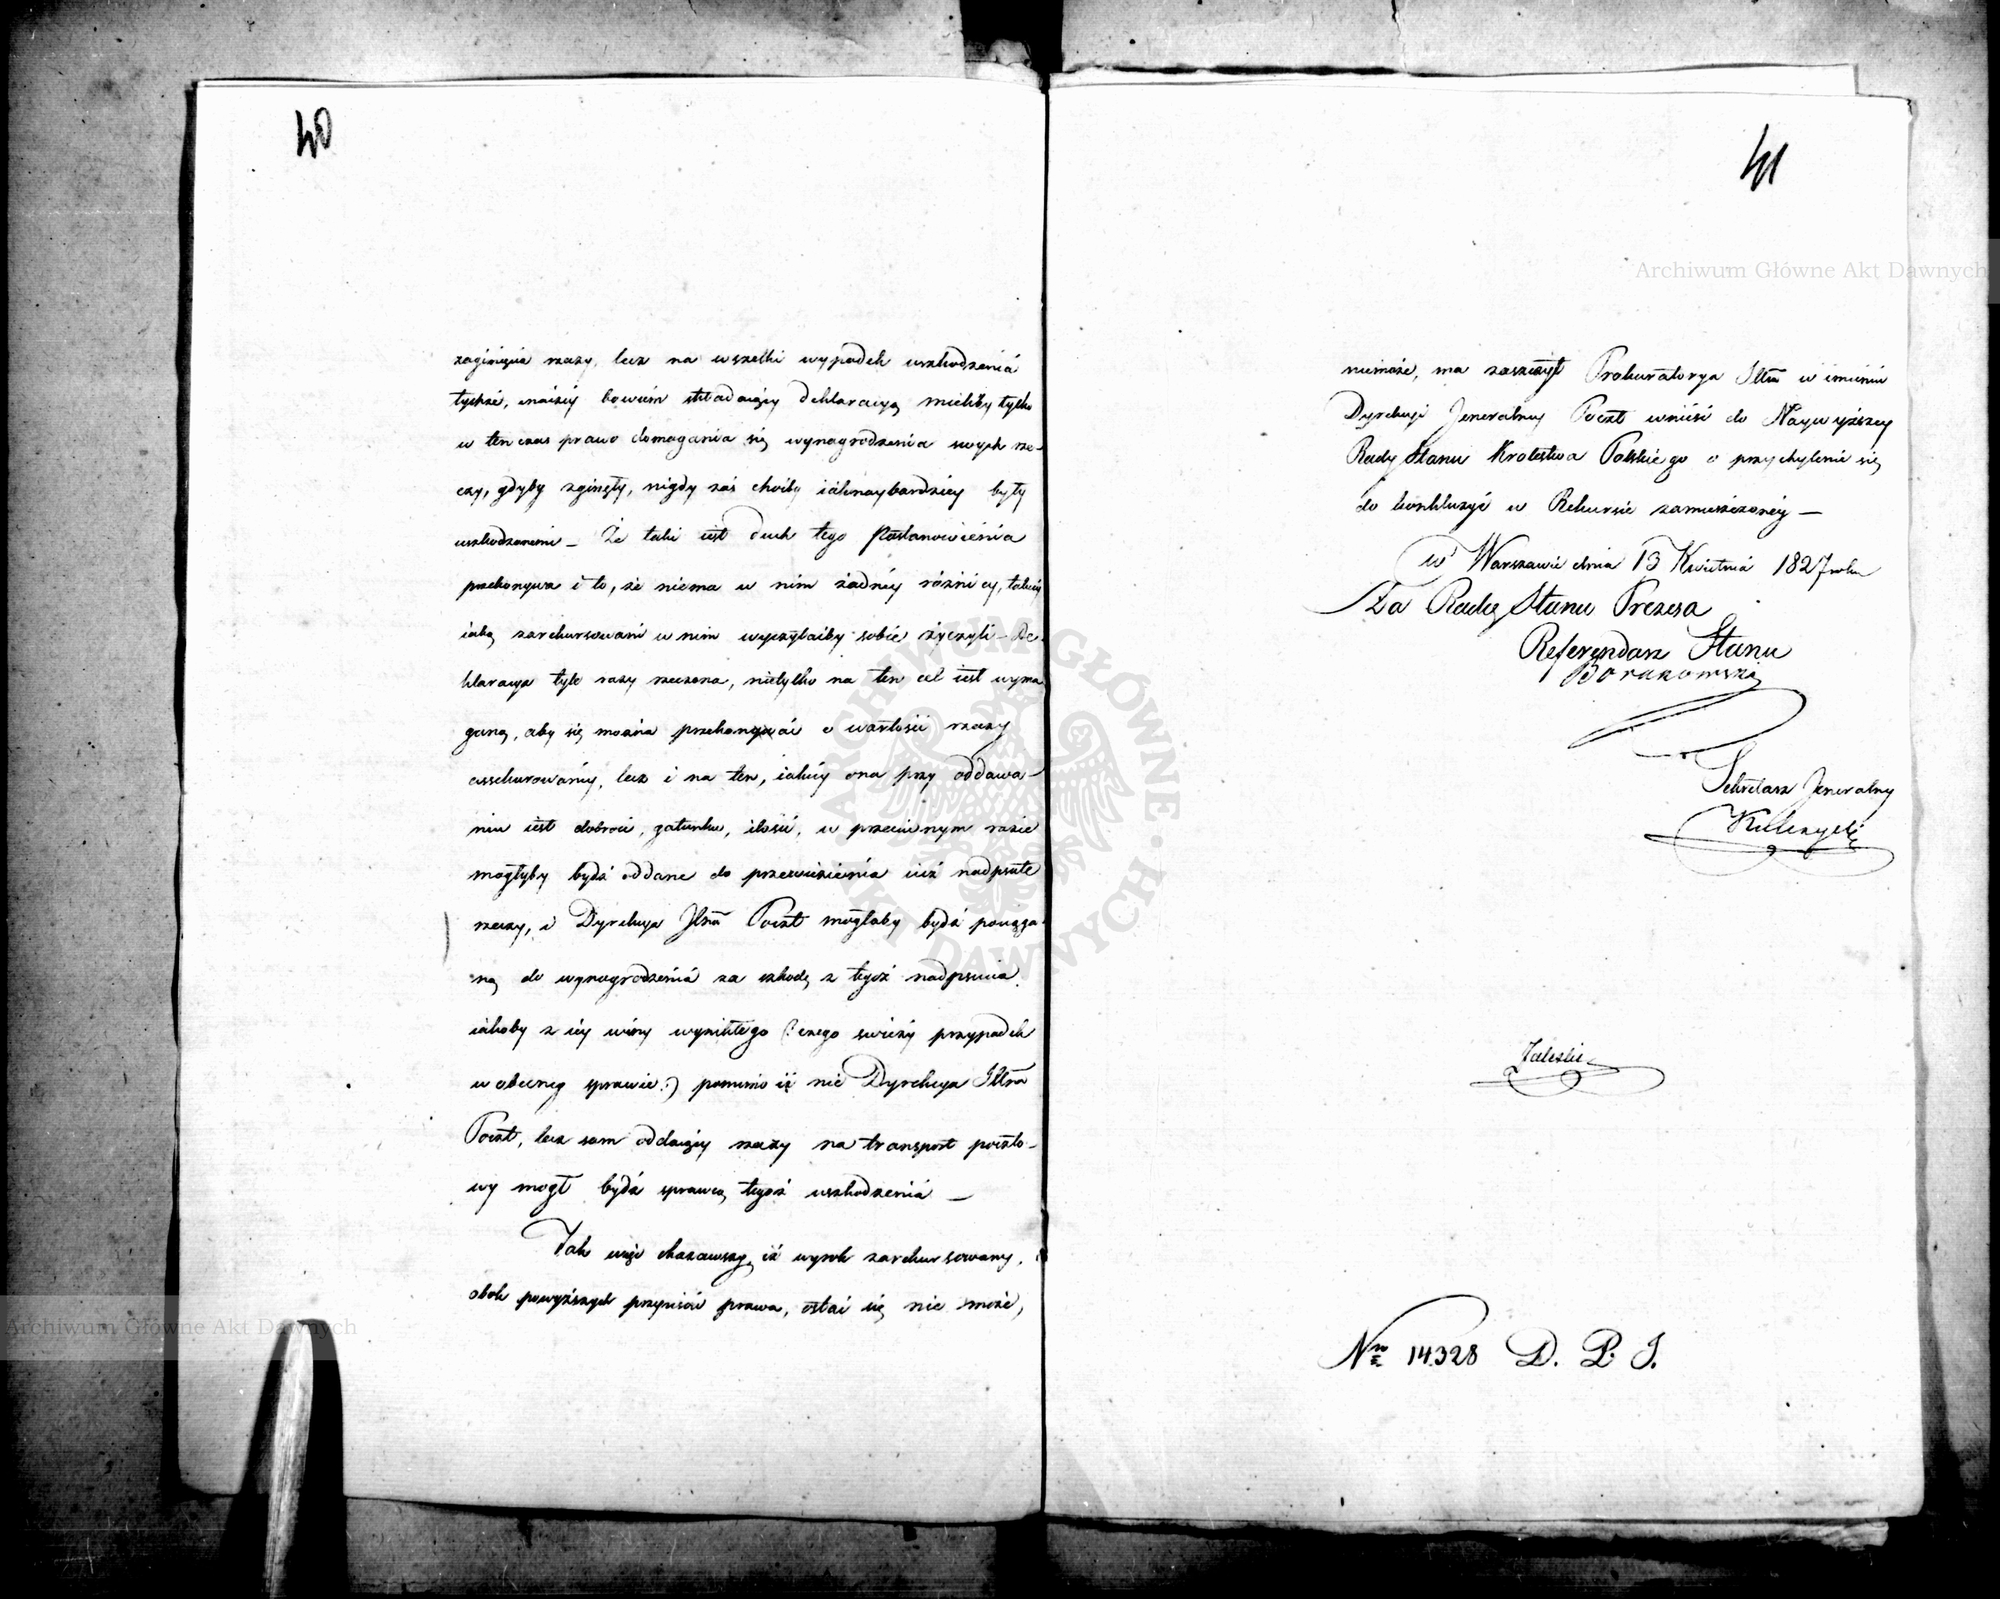 40
zaginięcia rzeczy, lecz na wszelki wypadek uszkodzenia
tychże, inaczéy bowiem składaiący deklaracyą mieliby tylko
w ten czas prawo domagania się wynagrodzenia swych rze-
czy, gdyby zginęły, nigdy zaś choćby iaknaybardziéy były
uszkodzonemi — Że taki iest duch tego Postanowienia
przekonywa i to, że niema w nim żadnéy różnicy, takiéy
iaką zarekursowani w nim wyczytaćby sobie życzyli — De-
klaracya tyle razy rzeczona, nietylko na ten cel iest wyma-
ganą, aby się można przekonywać o wartości rzeczy
assekurowanéy, lecz i na ten, iakiéy ona przy oddawa-
niu iest dobroci, gatunku, ilości, w przeciwnym razie
mogłyby bydź oddane do przewiezienia iuż nadpsute
rzeczy, i Dyrekcya Jlna Poczt mogłaby bydź pociąga-
ną do wynagrodzenia za szkodę z tegoż nadpsucia
iakoby z iéy winy wynikłego (: czego świeży przypadek
w obecnéy sprawie :) pomimo iż nie Dyrekcya Jlna
Poczt, lecz sam oddaiący rzeczy na transport poczto-
wy mogł bydź sprawcą tegoż uszkodzenia —
Tak więc okazawszy, iż wyrok zarekursowany,
obok powyższych przepisów prawa, ostać się nie może,
41
Archiwum Główne Akt Dawnych
niemoże, ma zaszczyt Prokuratorya Jlna w imieniu
Dyrekcyi Jeneralnéy Poczt wnieść do Naywyższéy
Rady Stanu Krolestwa Polskiego o przychylenie się
do konkluzyi w Rekursie zamieszczonéy —
w Warszawie dnia 13 Kwietnia 1827 roku
Za Radcę Stanu Prezesa
Referendarz Stanu
Sekretarz Jeneralny
Zaleski
Nro 14328 D. P. J.
Archiwum Główne Akt Dawnych
ARCHIWUM GŁÓWNE AKT DAWNYCH